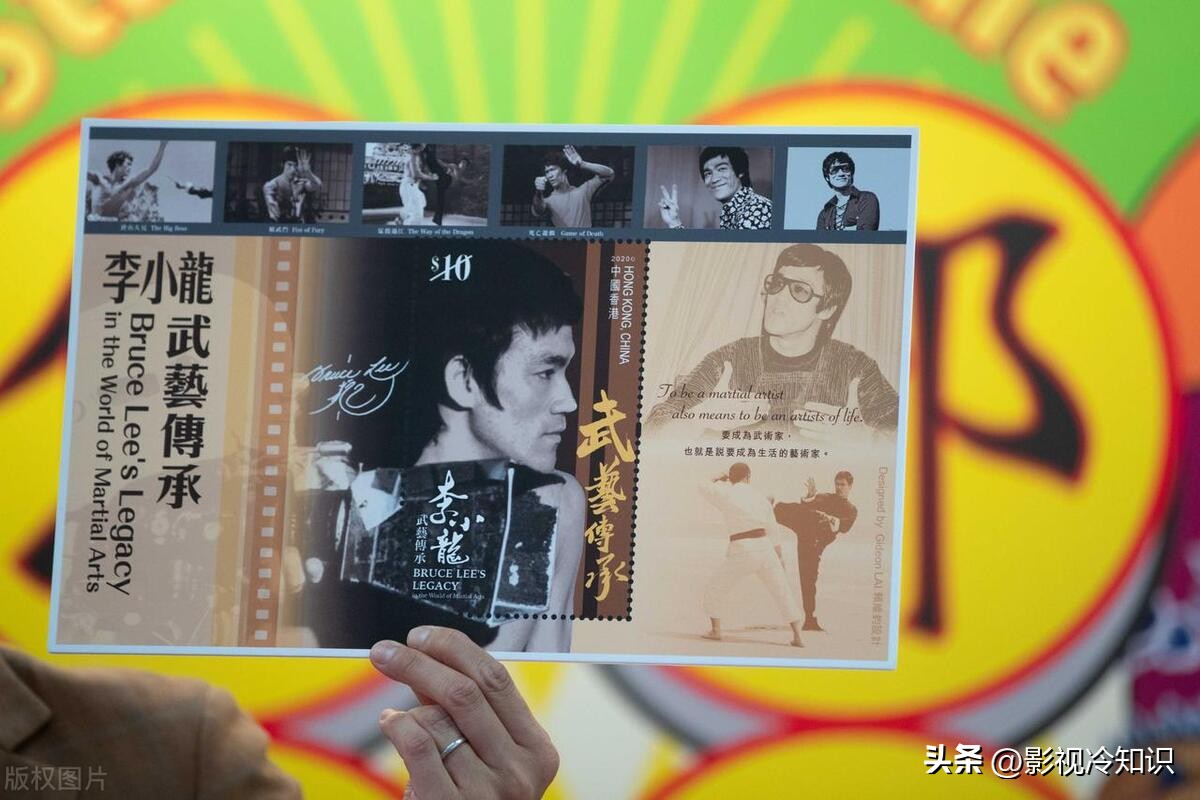 李小龍武藝傳承
Bruce Lee's Legacy
in the World of Martial Arts
The Big Boss
精武門 Fist of Fury
猛龍過江 The Way of the Dragon
死亡遊戲 Game of Death
$10
2020
中國香港
HONG KONG, CHINA
Bruce Lee
武藝傳承
李小龍
武藝傳承
BRUCE LEE'S
LEGACY
in the World of Martial Arts
To be a martial artist
also means to be an artists of life.
要成為武術家，
也就是說要成為生活的藝術家。
Designed by Gideon LAI
版权图片
头条 @影视冷知识